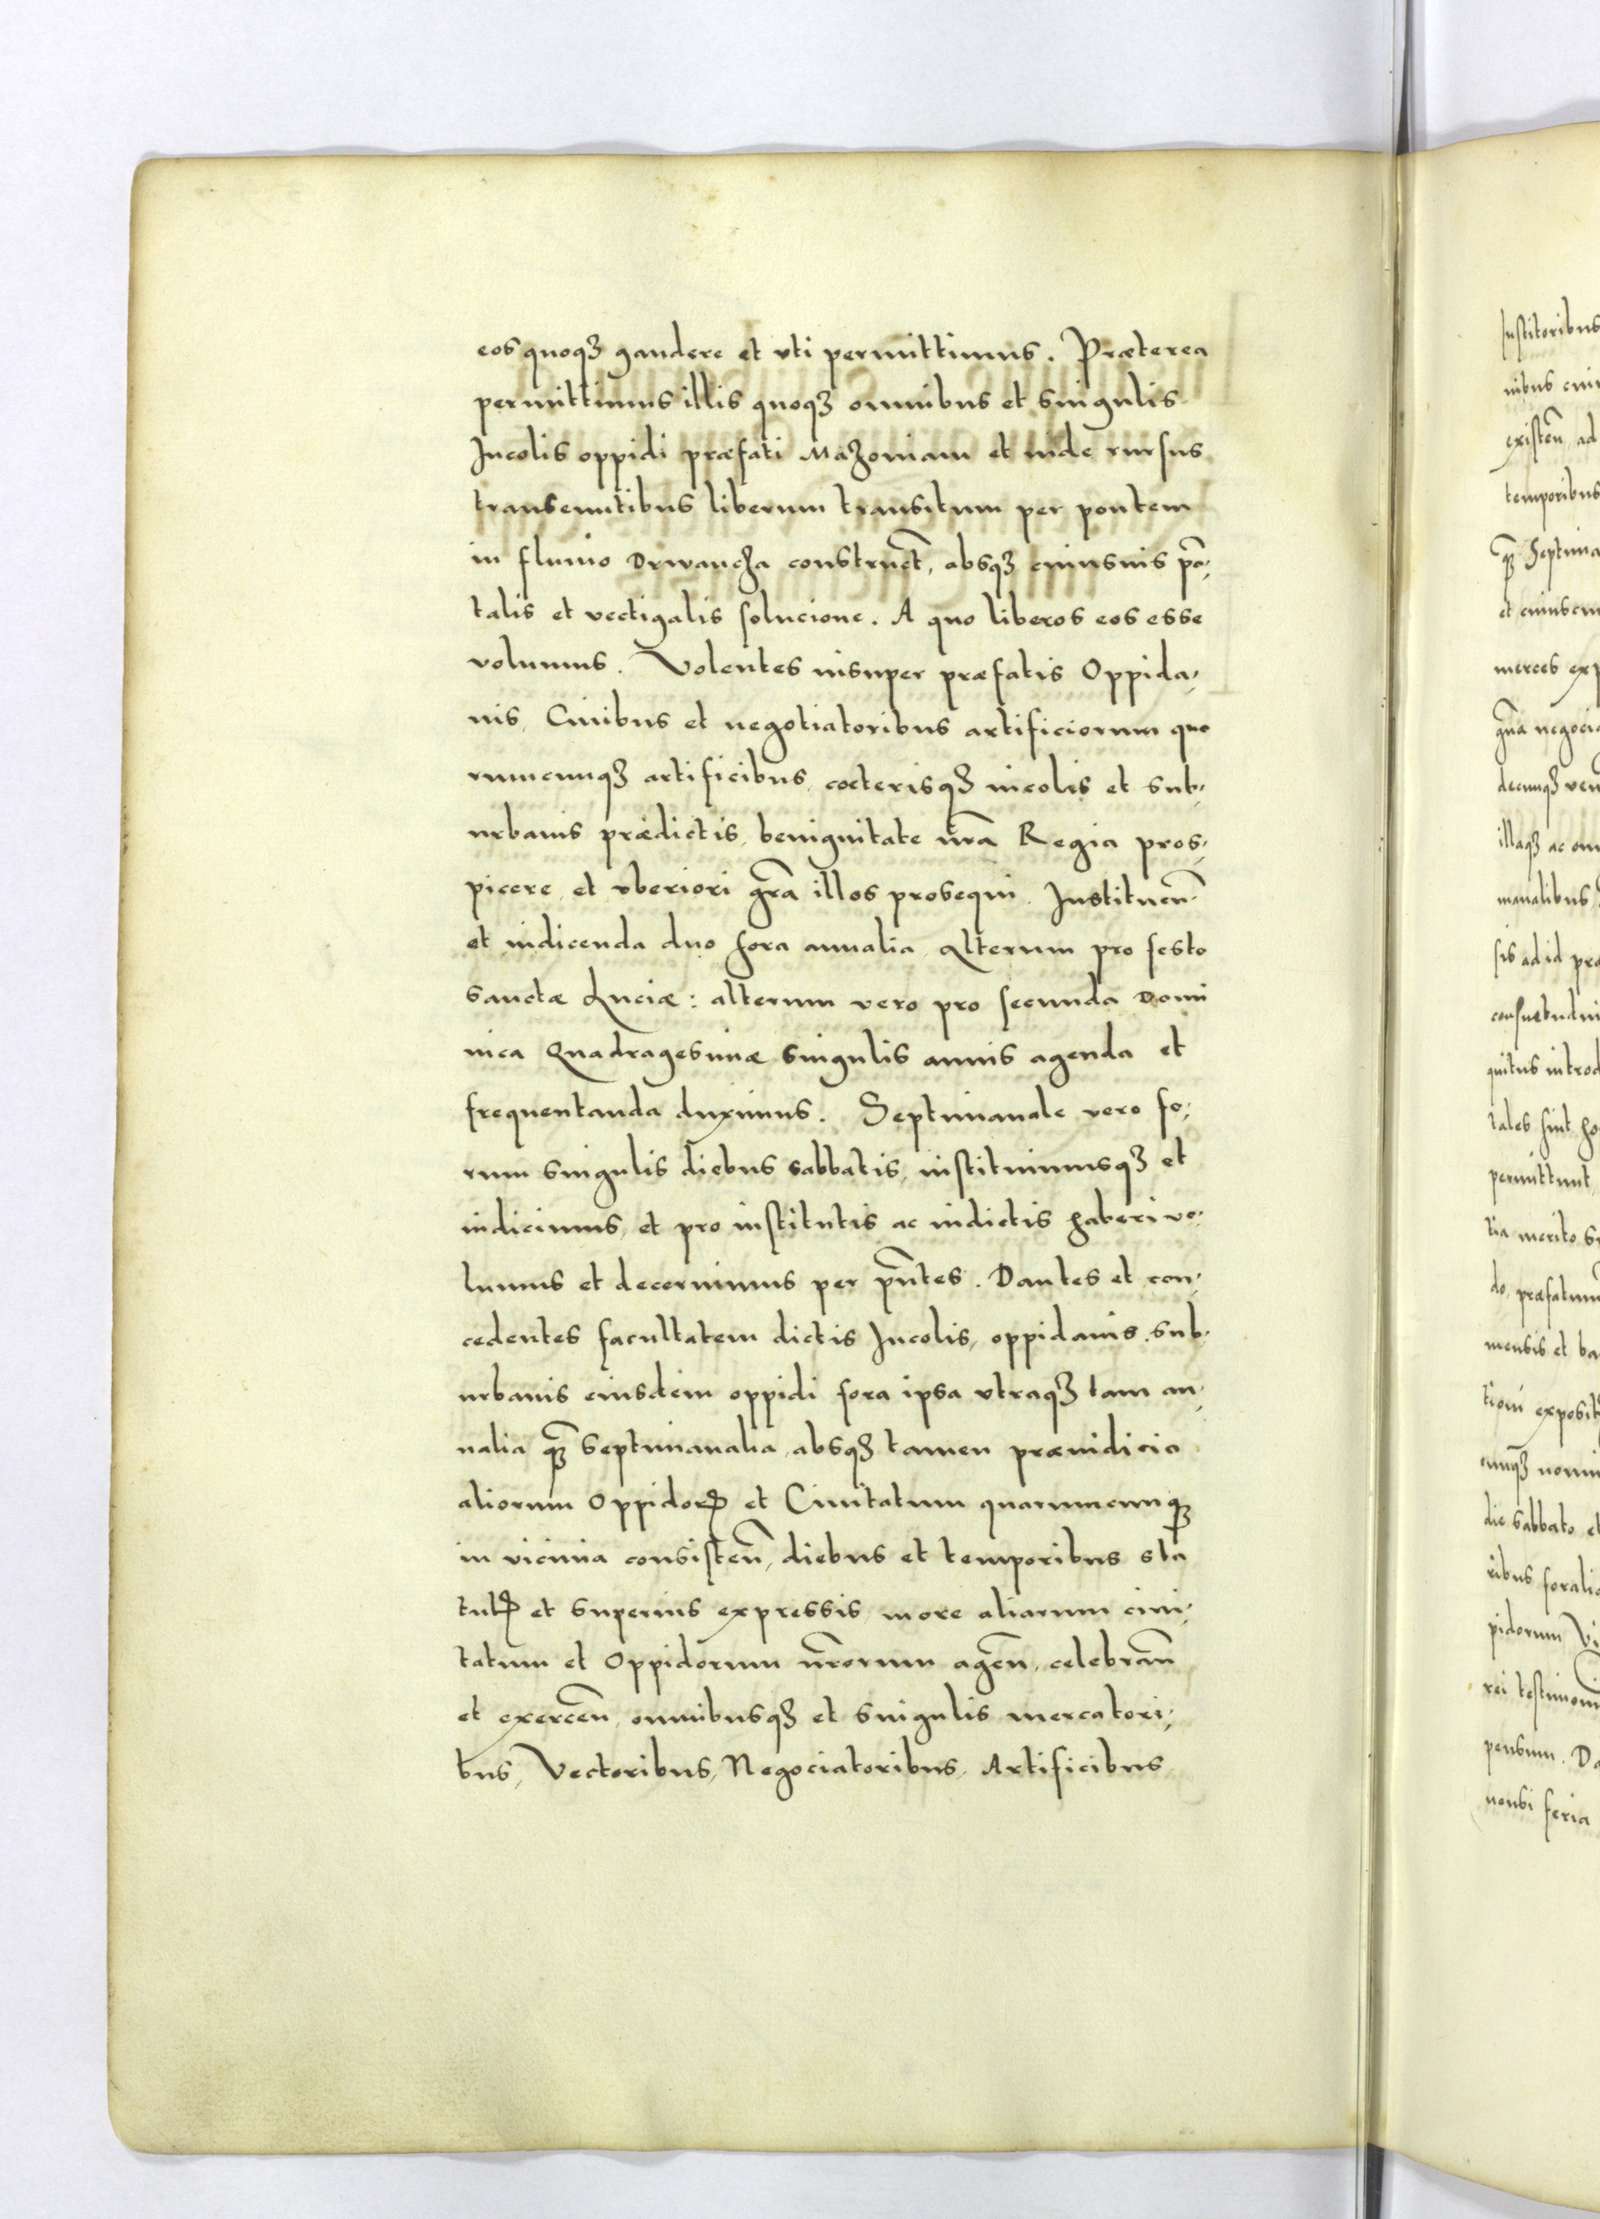 eos quoqꝫ gaudere et vti permittimus. Præterea
permittimus illis quoqꝫ omnibus et singulis
Incolis oppidi præfati Mazoniam et inde rursus
transeuntibus liberum transitum per pontem
in fluuio Drwancza construct̄, absqꝫ cuiusuis põ,
talis et vectigalis solucione. A quo liberos eos esse
volumus. Volentes insuper præfatis Oppida,
nis, Ciuibus et negotiatoribus artificiorum quo
rumcunqꝫ artificibus, cœterisqꝫ incolis et sub,
urbanis prædictis, benignitate nr̄a Regia pros,
picere, et vberiori gr̄a illos prosequi. Instituen̄
et indicenda duo fora annalia, alterum pro festo
sanctæ Luciæ: alterum vero pro secunda Domi
nica Quadragesimæ singulis annis agenda et
frequentanda duximus. Septimanale vero fo,
rum singulis diebus sabbatis, instituimusqꝫ et
indicimus, et pro institutis ac indictis haberi vo,
lumus et decernimus per pn̄tes. Dantes et con,
cedentes facultatem dictis Incolis, oppidanis, sub,
urbanis eiusdem oppidi fora ipsa vtraqꝫ tam an,
nalia qꝫ̄ septimanalia, absqꝫ tamen præiudicio
aliorum Oppidoꝝ et Ciuitatum quarumcunqꝫ
in vicinia consisten̄, diebus et temporibus sta
tutꝭ et superius expressis, more aliarum ciui,
tatum et Oppidorum nr̄orum agen̄, celebran̄
et exercen̄, omnibusqꝫ et singulis mercatori,
bus, Vectoribus, Negociatoribus, Artificibus
Institoribus
existen̄, ad
temporibus
qꝫ̄ Septima
merces exp
gn̄a negocia
illaqꝫ ac om
manalibus
sis ad id præ
consuetudin
quitus introd
tales sint ho
permittunt
tia merito
do, præfatum
mensis et
exposit
die sabbato et
ribus foralia
pidorum
rei testimoni
pensum. Da
feria